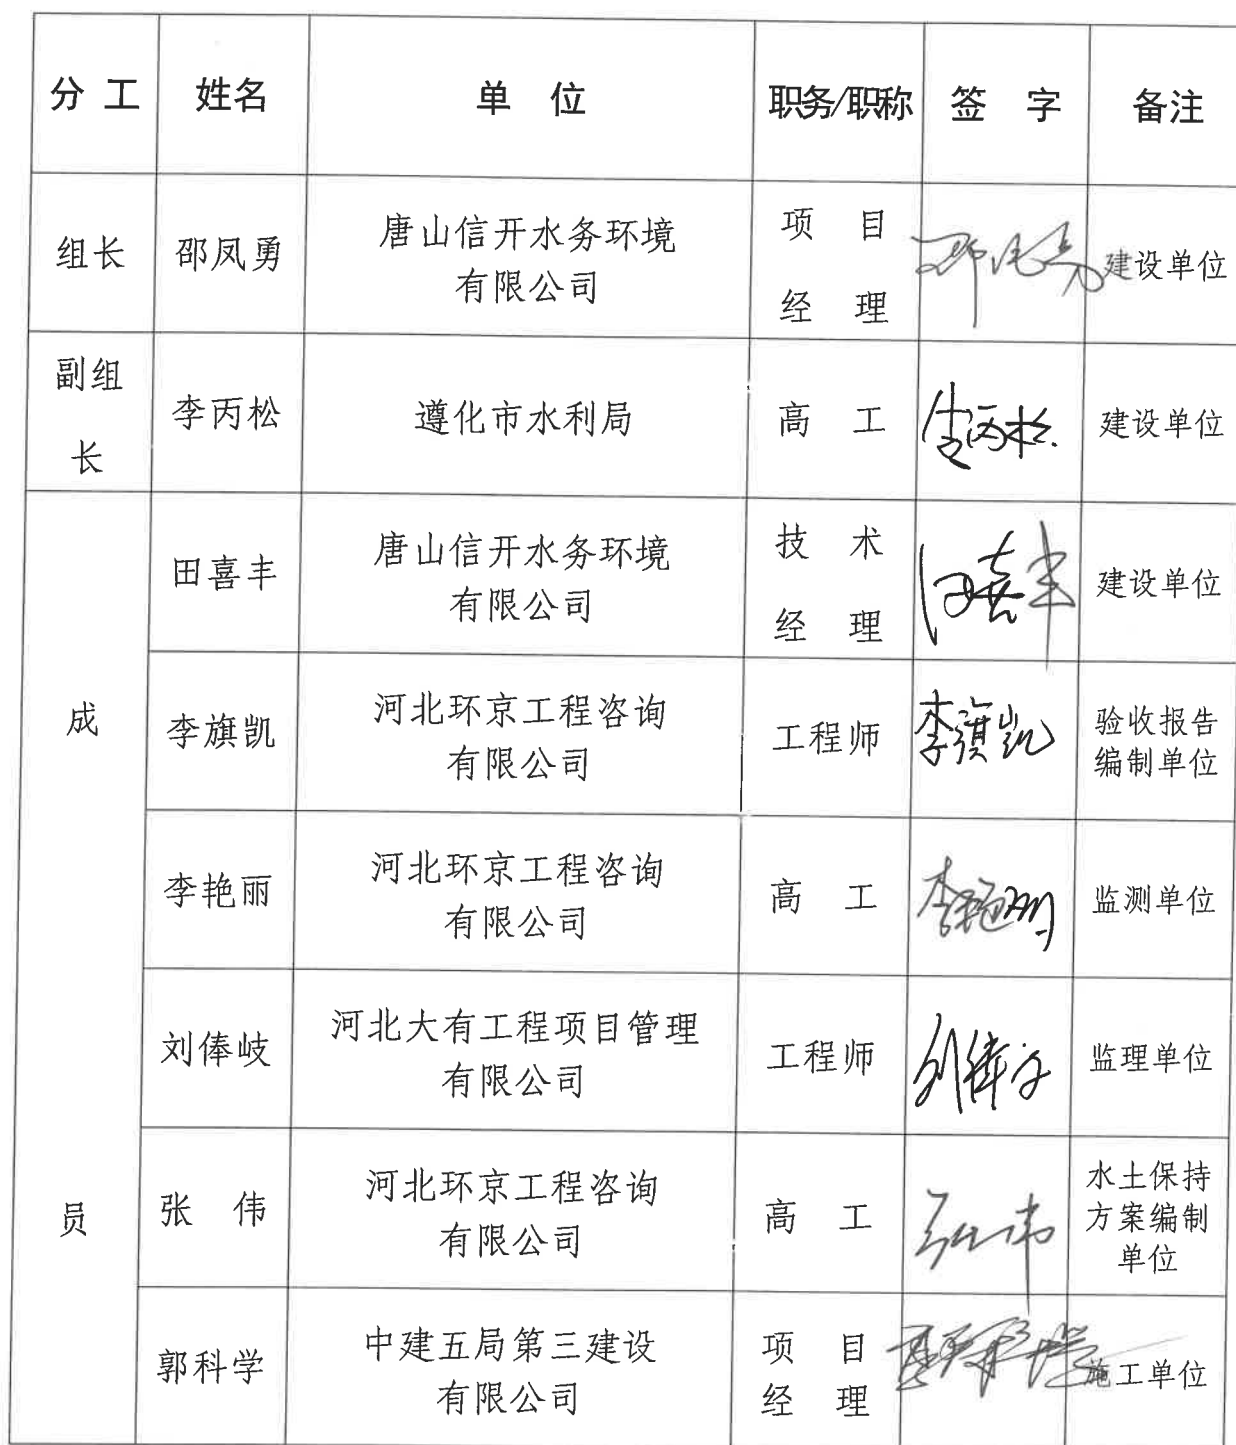 分 工 姓名 单 位 职务/职称 签 字 备注
组长 邵凤勇 唐山信开水务环境有限公司 项目经理 邵凤勇 建设单位
副组长 李丙松 遵化市水利局 高工 李丙松 建设单位
成员 田喜丰 唐山信开水务环境有限公司 技术经理 田喜丰 建设单位
李旗凯 河北环京工程咨询有限公司 工程师 李旗凯 验收报告编制单位
李艳丽 河北环京工程咨询有限公司 高工 李艳丽 监测单位
刘俸岐 河北大有工程项目管理有限公司 工程师 监理单位
张 伟 河北环京工程咨询有限公司 高工 张伟 水土保持方案编制单位
郭科学 中建五局第三建设有限公司 项目经理 施工单位